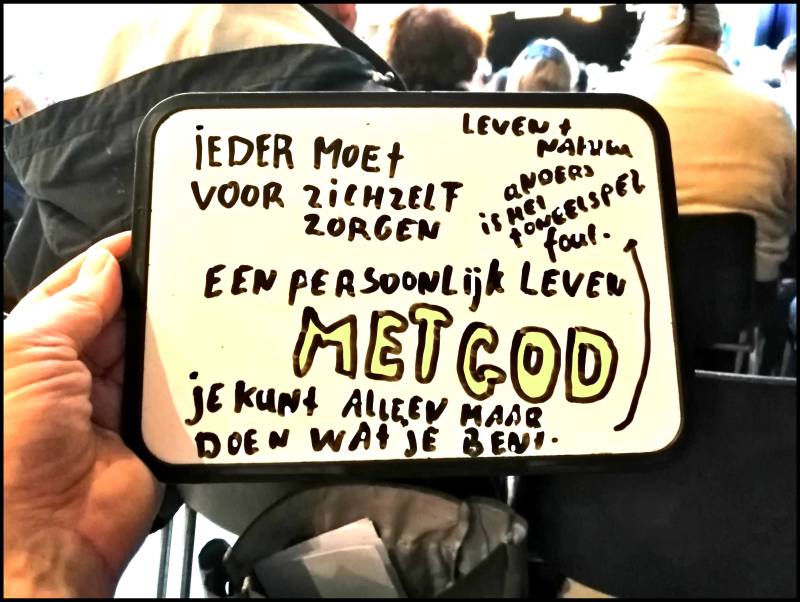 iEDER MOEt
VOOR ZiCHZELF
ZORGEN
LEVEN +
NATUUR
ANDERS
iS HEt
tONEELSPEL
fout.
EEN PERSOONLijk LEVEN
MET GOD
jE KUNt ALLEEN MAAR
DOEN WAt JE BENt.